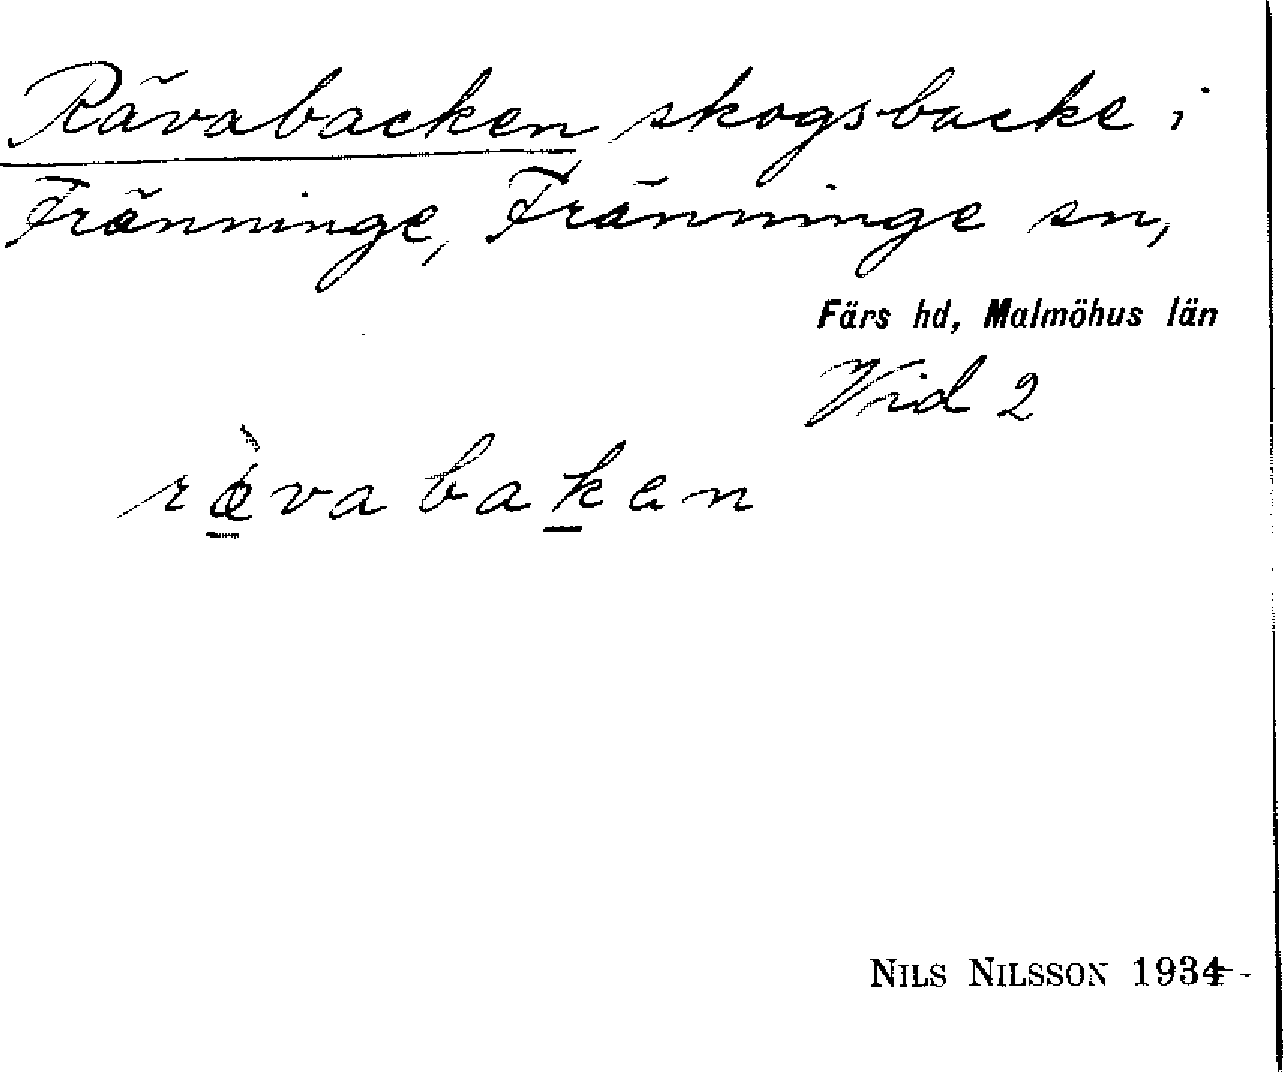 Rävabacken skogsbacke i
Fränninge, Fränninge sn,
Färs hd, Malmöhus län
Vid 2
ræ̀vabaken
NILS NILSSON 1934